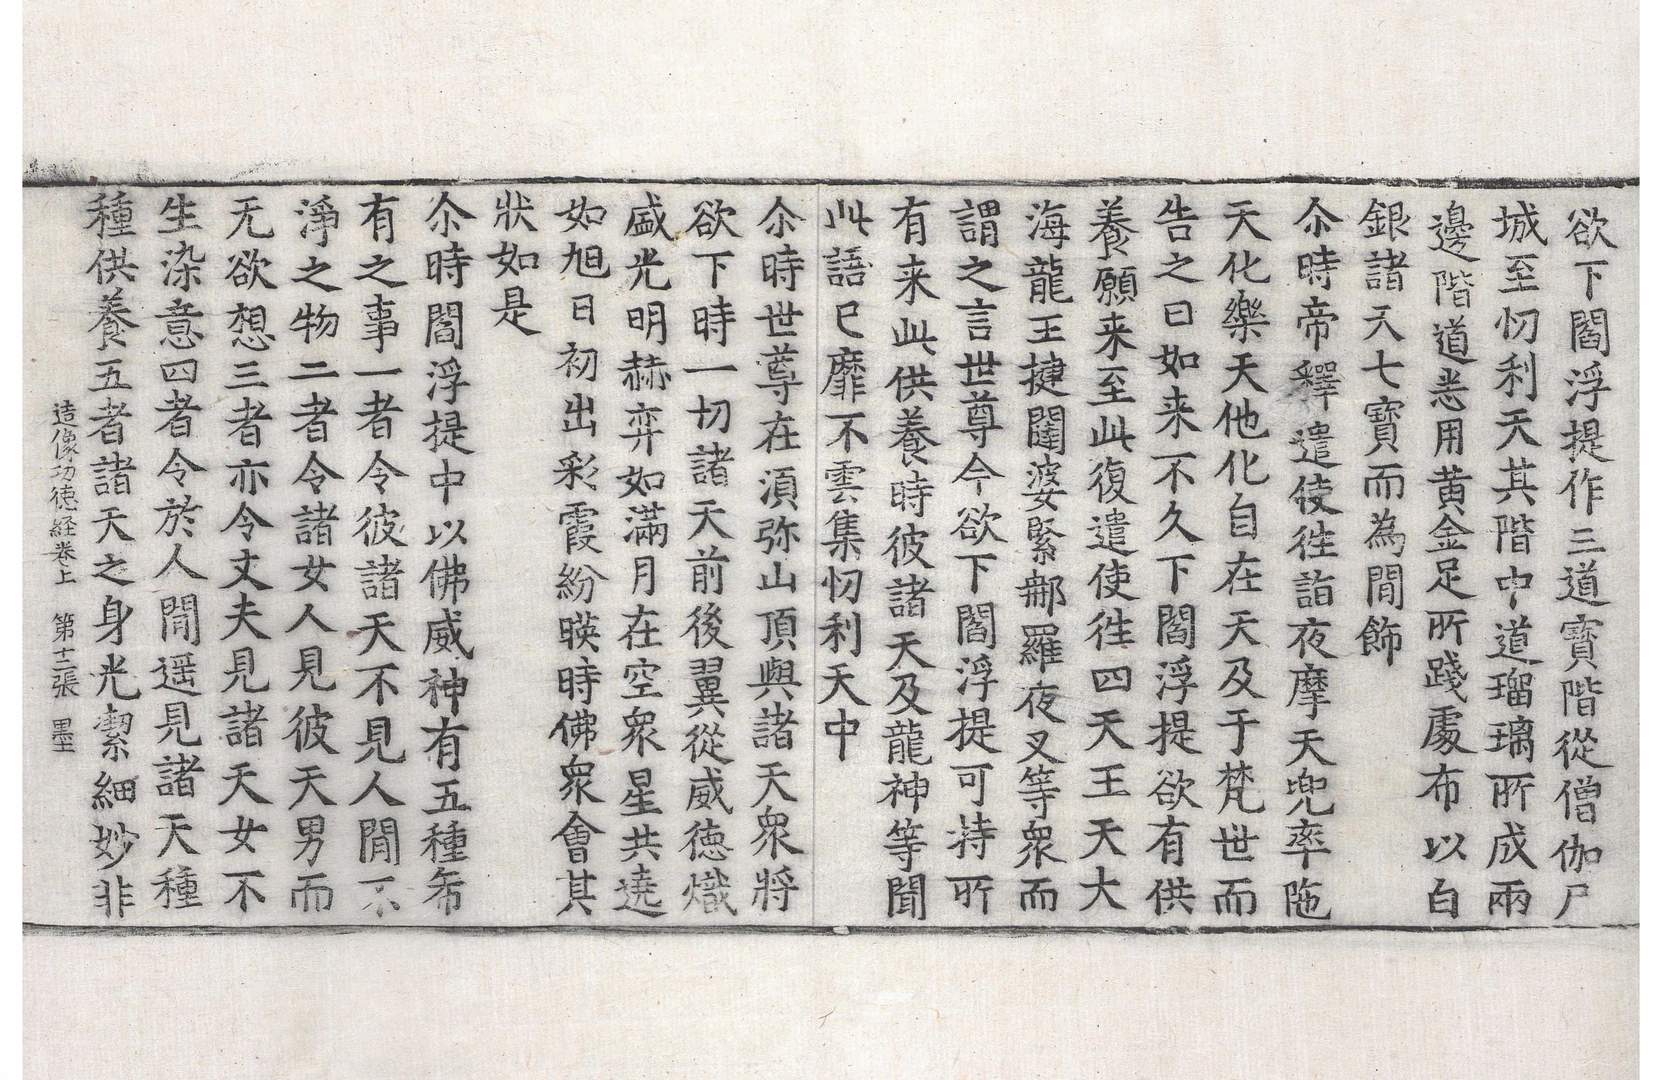 欲下閻浮提作三道寶階從僧伽尸
城至忉利天其階中道瑠璃所成兩
邊階道悉用黄金足所踐處布以白
銀諸天七寶而為間飾
尒時帝釋遣使徃詣夜摩天兜率陁
天化樂天他化自在天及于梵世而
告之曰如来不久下閻浮提欲有供
養願来至此復遣使徃四天王天大
海龍王揵闥婆緊那羅夜叉等衆而
謂之言世尊今欲下閻浮提可持所
有来此供養時彼諸天及龍神等聞
此語已靡不雲集忉利天中
尒時世尊在湏弥山頂與諸天衆將
欲下時一切諸天前後翼從威徳熾
盛光明赫弈如滿月在空衆星共遶
如旭日初出彩霞紛暎時佛衆會其
狀如是
尒時閻浮提中以佛威神有五種希
有之事一者令彼諸天不見人閒不
淨之物二者令諸女人見彼天男而
无欲想三者亦令丈夫見諸天女不
生染意四者令於人閒遥見諸天種
種供養五者諸天之身光潔細妙非
造像功徳経巻上 第十二張 墨